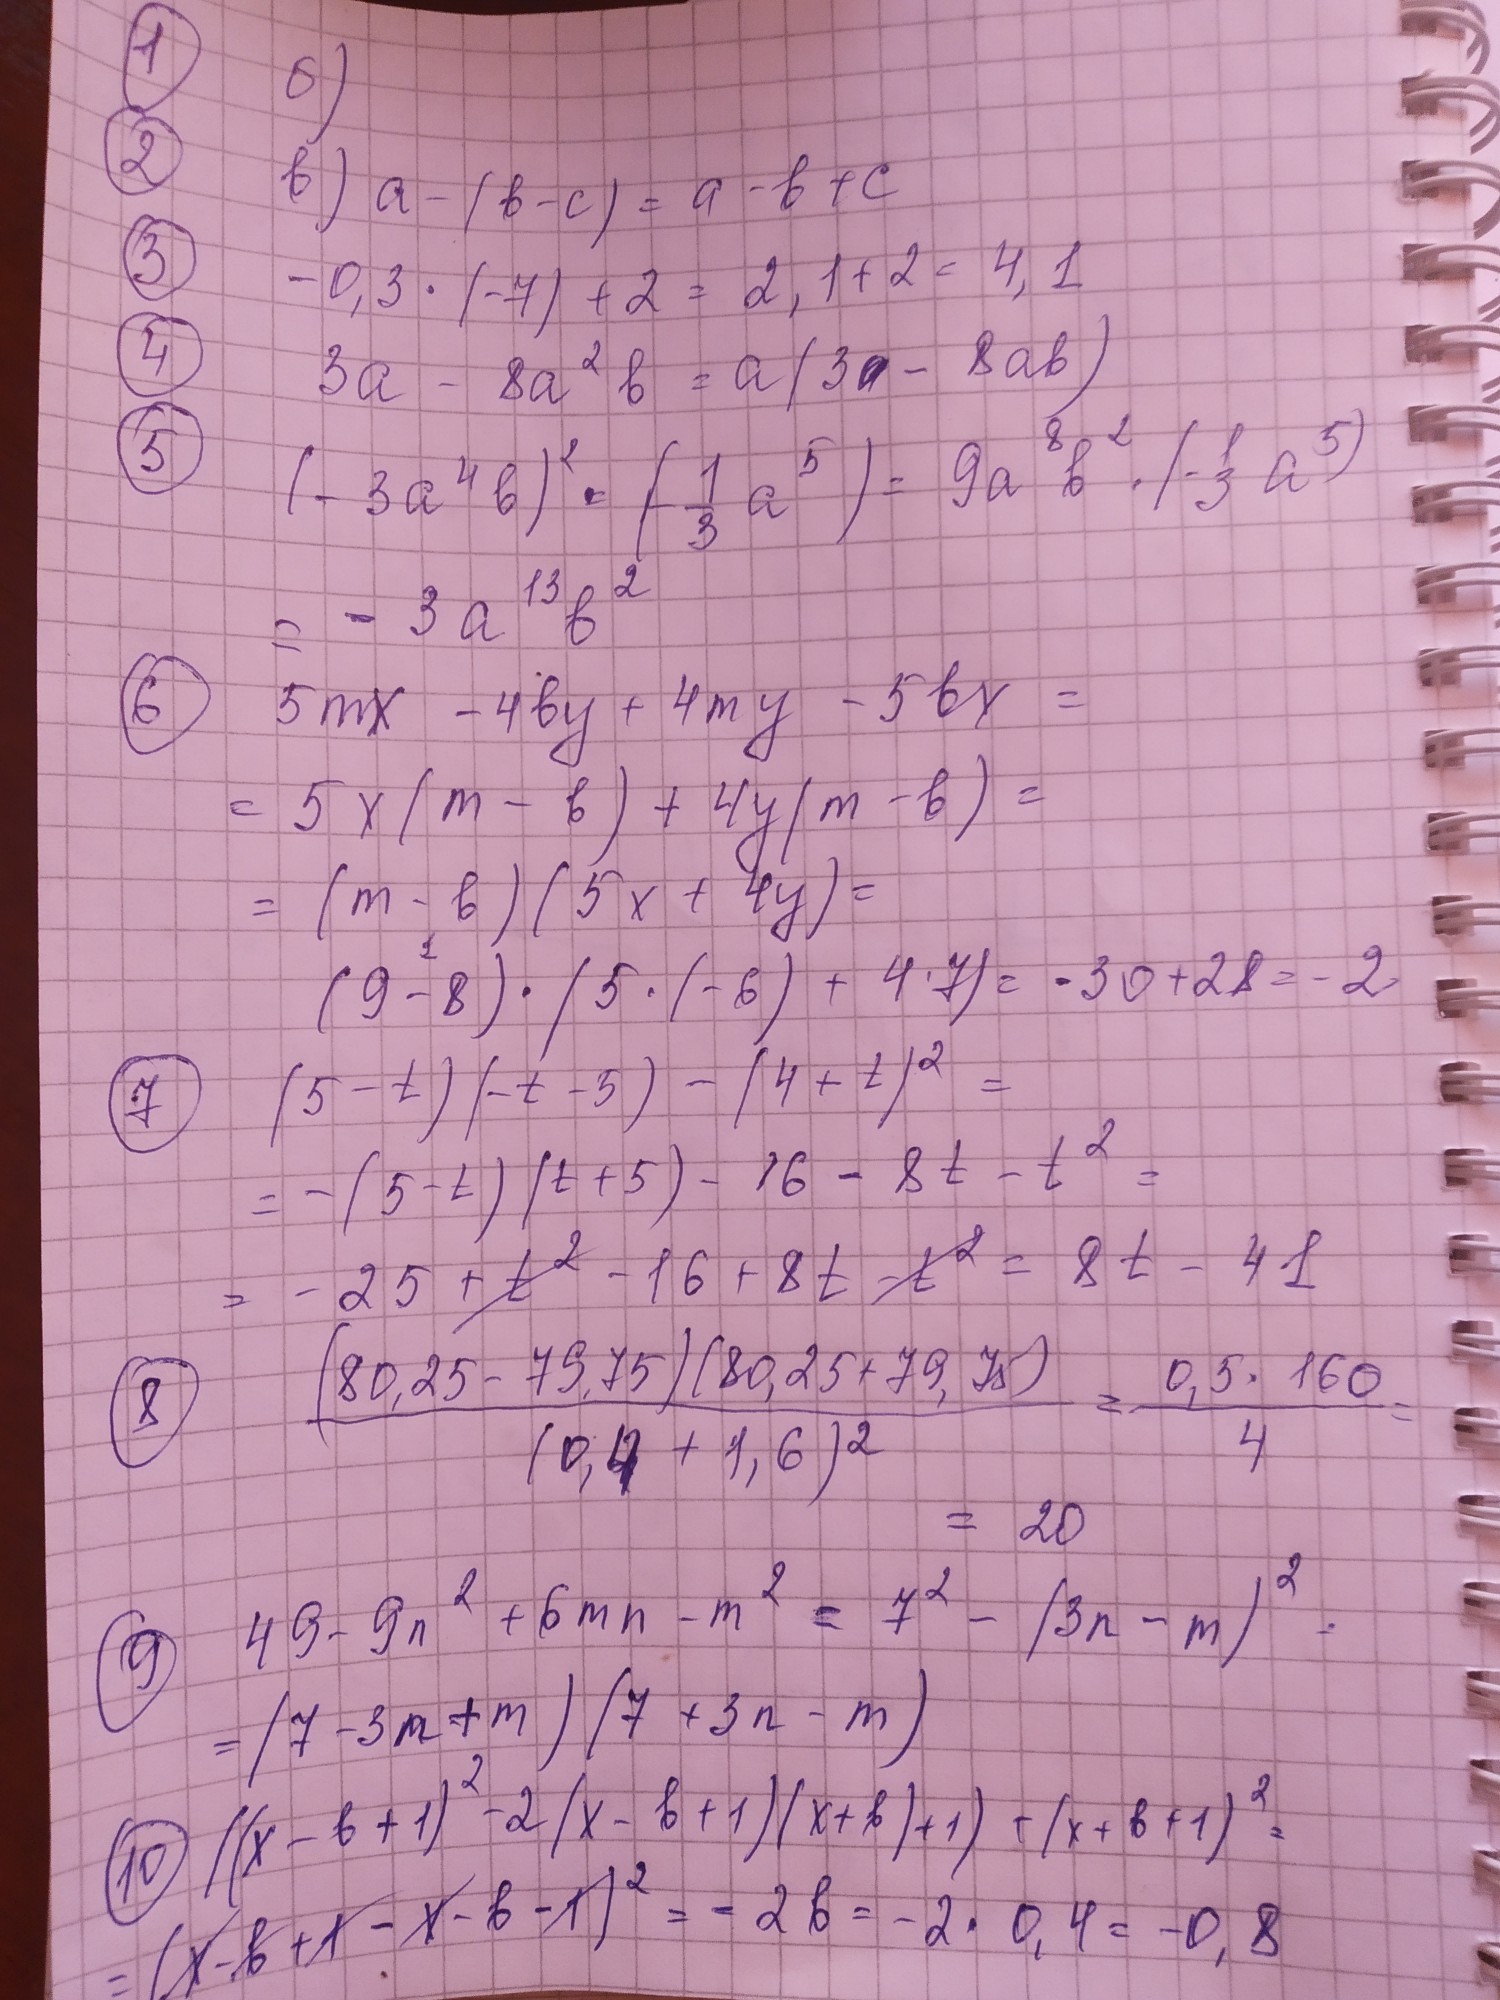 1 б)
2 в) a - (b - c) = a - b + c
3 -0,3 · (-7) + 2 = 2,1 + 2 = 4,1
4 3a - 8a²b = a(3a - 8ab)
5 (-3a⁴b)² · (-1/3 a⁵) = 9a⁸b² · (-1/3 a⁵)
= -3a¹³b²
6 5mx - 4by + 4my - 5bx =
= 5x(m - b) + 4y(m - b) =
= (m - b)(5x + 4y) =
(9 - 8)¹ · (5 · (-6) + 4 · 7) = -30 + 28 = -2
7 (5 - t)(-t - 5) - (4 + t)² =
= -(5 - t)(t + 5) - 16 - 8t - t² =
= -25 + t² - 16 + 8t - t² = 8t - 41
8 (80,25 - 79,75)(80,25 + 79,75) / (0,4 + 1,6)² = 0,5 · 160 / 4 =
= 20
9 49 - 9n² + 6mn - m² = 7² - (3n - m)² =
= (7 - 3n + m)(7 + 3n - m)
10 ((x - b + 1)² - 2(x - b + 1)(x + b) + 1) + (x + b + 1)² =
= (x - b + 1 - x - b - 1)² = -2b = -2 · 0,4 = -0,8